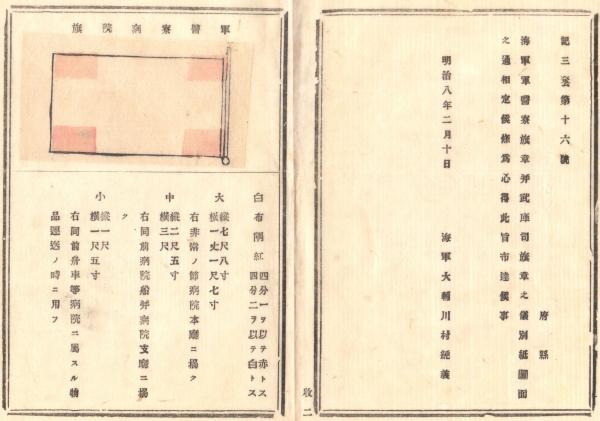 記三套第十六號
府縣
海軍軍醫寮旗章幷武庫司旗章之儀別紙圖面
之通相定候條爲心得此旨布達候事
明治八年二月十日
海軍大輔川村純義
軍醫寮病院旗
白布隅紅
四分一ヲ以テ赤トス
四分二ヲ以テ白トス
大
縱七尺八寸
橫一丈一尺七寸
右非常ノ節病院本廳ニ揭ク
中
縱二尺五寸
橫三尺
右同前病院船幷病院支廳ニ揭
ク
小
縱一尺
橫一尺五寸
右同前舟車等病院ニ屬スル物
品運送ノ時ニ用フ